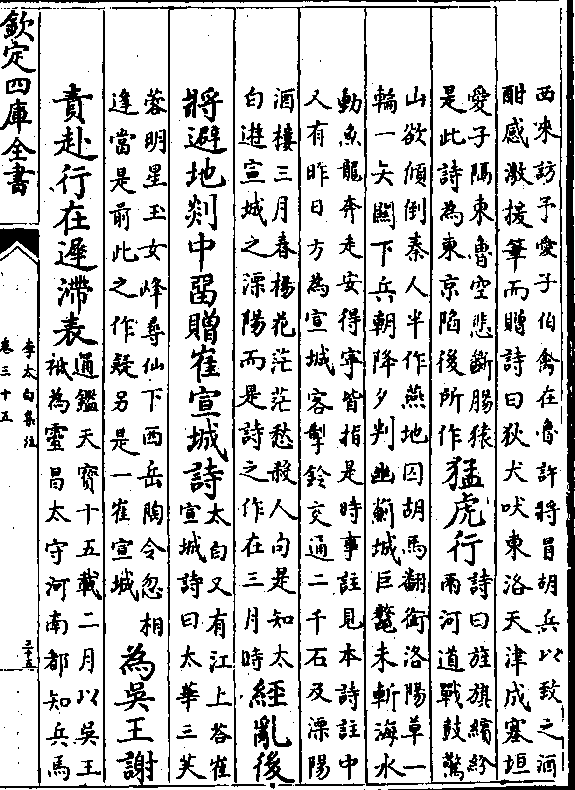 西来訪予愛子伯禽在魯許將冒胡兵以致之酒
酣感激援筆而贈詩曰狄犬吠東洛天津成塞垣
愛子隔東魯空悲斷腸猿
是此詩為東京陷後所作
猛虎行
詩曰旌旗繽紛
兩河道戰鼓驚
山欲傾倒秦人半作燕地囚胡馬翻銜洛陽草一
輸一失關下兵朝降夕判幽薊城巨鼇未斬海水
動魚龍奔走安得寧皆指是時事註見本詩註中
又有昨日方為宣城客掣鈴交通二千石及溧陽
酒樓三月春楊花茫茫愁殺人句是知太
白遊宣城之溧陽而是詩之作在三月時
經亂後
將避地剡中留贈崔宣城詩
太白又有江上答崔
宣城詩曰太華三芙
蓉明星玉女峰尋仙下西岳陶令忽相
逢當是前此之作疑另是一崔宣城
為吳王謝
責赴行在遲滯表
通鑑天寶十五載二月以吳王
祗為靈昌太守河南都知兵馬
欽定四庫全書
李太白集注
卷三十五
三十五